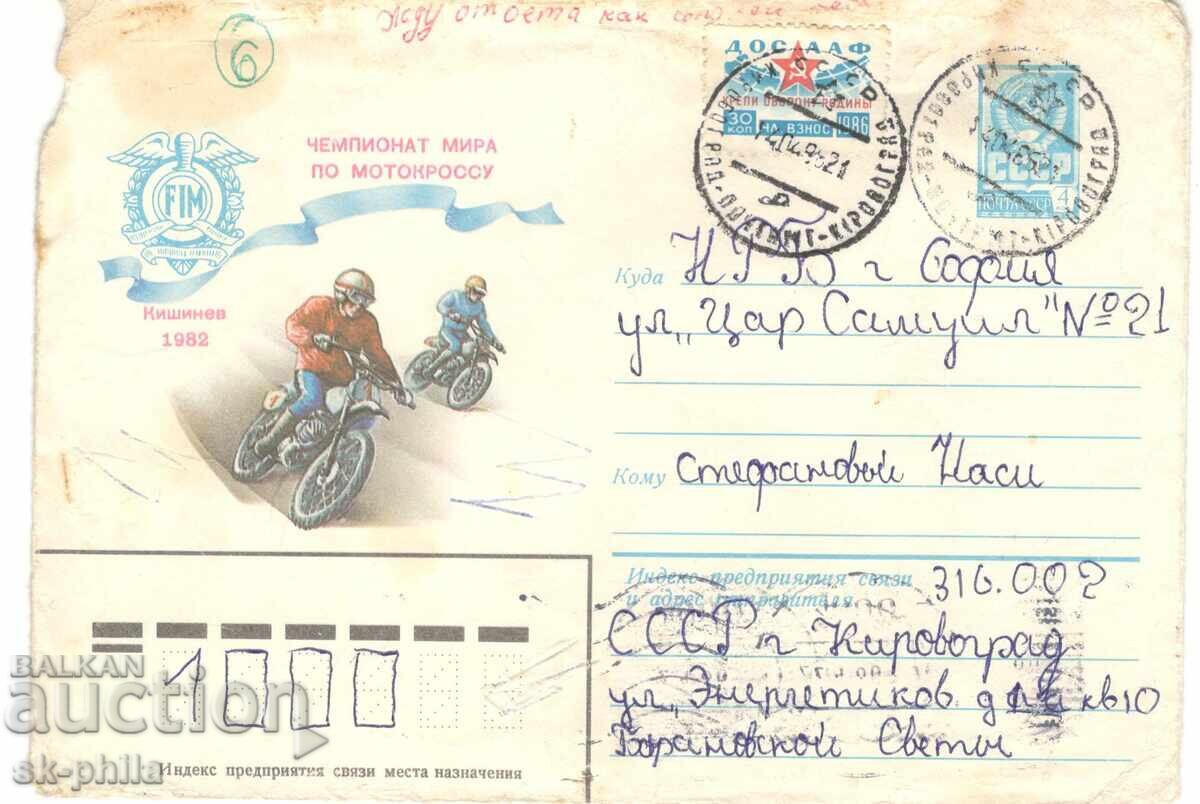 Жду ответа как
6
ДОСААФ
КРЕПИ ОБОРОНУ РОДИНЫ
30 КОП НА ВЗНОС 1986
СССР
ПОЧТА СССР 4
КІРОВОГРАД
КІРОВОГРАД
FIM
ЧЕМПИОНАТ МИРА
ПО МОТОКРОССУ
Кишинев
1982
1
Куда НРБ г София
ул „Цар Самуил" № 21
Кому Стефановый Наси
Индекс предприятия связи
и адрес отправителя
316.002
СССР г Кировоград
ул „Энергетиков д кв 10
Барановской Светы
1000
Индекс предприятия связи места назначения
BALKAN
auction
sk-phila